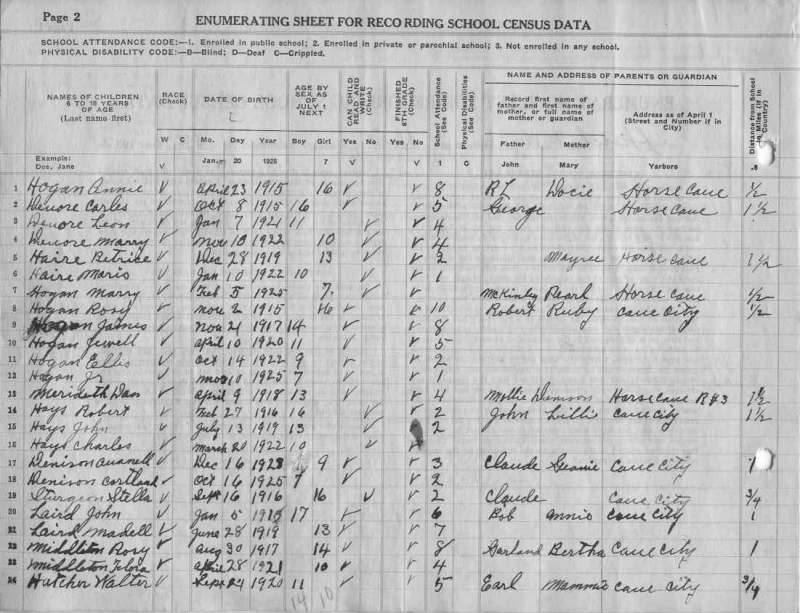 Page 2
ENUMERATING SHEET FOR RECORDING SCHOOL CENSUS DATA
SCHOOL ATTENDANCE CODE:—1. Enrolled in public school; 2. Enrolled in private or parochial school; 3. Not enrolled in any school.
PHYSICAL DISABILITY CODE:—B—Blind; D—Deaf C—Crippled.
NAMES OF CHILDREN 6 TO 18 YEARS OF AGE (Last name first) RACE (Check) W C DATE OF BIRTH Mo. Day Year AGE BY SEX AS OF JULY 1 NEXT Boy Girl CAN CHILD READ AND WRITE (Check) Yes No FINISHED 8TH GRADE (Check) Yes No School Attendance (See Code) Physical Disabilities (See Code) NAME AND ADDRESS OF PARENTS OR GUARDIAN Record first name of father and first name of mother, or full name of mother or guardian Father Mother Address as of April 1 (Street and Number if in City) Distance from School in Miles (if in Country)
Example: Doe, Jane V Jan. 20 1925 7 V V 1 C John Mary Yarboro .8
1 Hogan Annie V April 23 1915 16 V V 8 R L Docie Horse Cave ½
2 Denore Carles V Oct 8 1915 16 V V 5 George Horse Cave 1½
3 Denore Leon V Jan 7 1921 11 V V 4
4 Denore Marry V Nov 10 1922 10 V V 4
5 Haire Retrice V Dec 28 1919 13 V V 2 Mayree Horse Cave 1½
6 Haire Maris V Jan 10 1922 10 V V 1
7 Hogan Marry V Feb 5 1925 7 V V McKinley Pearl Horse Cave ½
8 Hogan Rosy V 2 1915 16 V V 10 Robert Ruby Cave City ½
9 Hogan James V Nov 21 1917 14 V V 8
10 Hogan Jewell V April 10 1920 11 V V 5
11 Hogan Ellis V Oct 14 1922 9 V V 2
12 Hogan Jr V 10 1925 7 V V 1
13 Merideth Dan V April 9 1918 13 V V 4 Mollie Denison Horse Cave R#3 1½
14 Hays Robert V Feb 27 1916 16 V V 2 John Lillie Cave City 1½
15 Hays John V July 13 1919 13 V 2
16 Hays Charles V March 20 1922 10 V V
17 Denison V Dec 16 1923 9 V V 3 Claude Geanie Cave City 1
18 Denison Cortland V Oct 16 1925 7 V V 2
19 Sturgeon Stella V Sept 16 1916 16 V V 2 Claude Cave City ¾
20 Laird John V Jan 5 1915 17 V V 6 Bob Annie Cave City 1
21 Laird Madell V June 28 1919 13 V V 7
22 Middleton Rosy V Aug 30 1917 14 V V 8 Garland Bertha Cave City 1
23 Middleton Flora V April 28 1921 10 V V 4
24 Hatcher Walter V Sept 24 1920 11 V V 5 Earl Mammie Cave City ¾
14 10